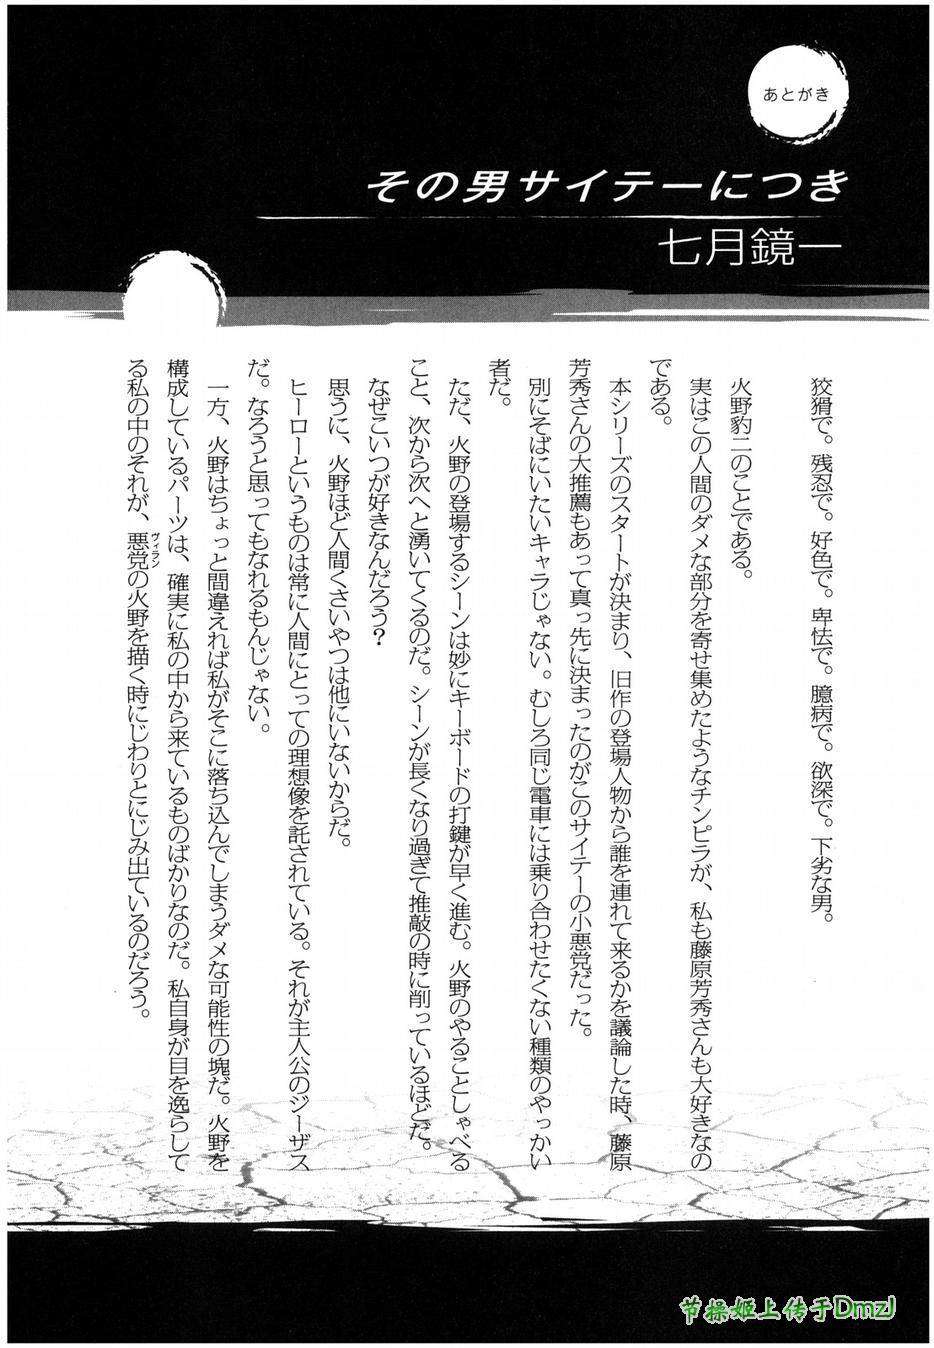 あとがき
その男サイテーにつき
七月鏡一
狡猾で。残忍で。好色で。卑怯で。臆病で。欲深で。下劣な男。
火野豹二のことである。
実はこの人間のダメな部分を寄せ集めたようなチンピラが、私も藤原芳秀さんも大好きなの
である。
本シリーズのスタートが決まり、旧作の登場人物から誰を連れて来るかを議論した時、藤原
芳秀さんの大推薦もあって真っ先に決まったのがこのサイテーの小悪党だった。
別にそばにいたいキャラじゃない。むしろ同じ電車には乗り合わせたくない種類のやっかい
者だ。
ただ、火野の登場するシーンは妙にキーボードの打鍵が早く進む。火野のやることしゃべる
こと、次から次へと湧いてくるのだ。シーンが長くなり過ぎて推敲の時に削っているほどだ。
なぜこいつが好きなんだろう？
思うに、火野ほど人間くさいやつは他にいないからだ。
ヒーローというものは常に人間にとっての理想像を託されている。それが主人公のジーザス
だ。なろうと思ってもなれるもんじゃない。
一方、火野はちょっと間違えれば私がそこに落ち込んでしまうダメな可能性の塊だ。火野を
構成しているパーツは、確実に私の中から来ているものばかりなのだ。私自身が目を逸らして
る私の中のそれが、悪党の火野を描く時にじわりとにじみ出ているのだろう。
ヴィラン
节操姬上传于Dmzj